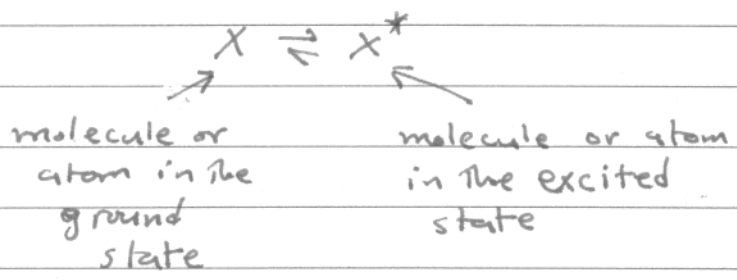 X ⇌ X*
molecule or
atom in the
ground
state
molecule or atom
in the excited
state